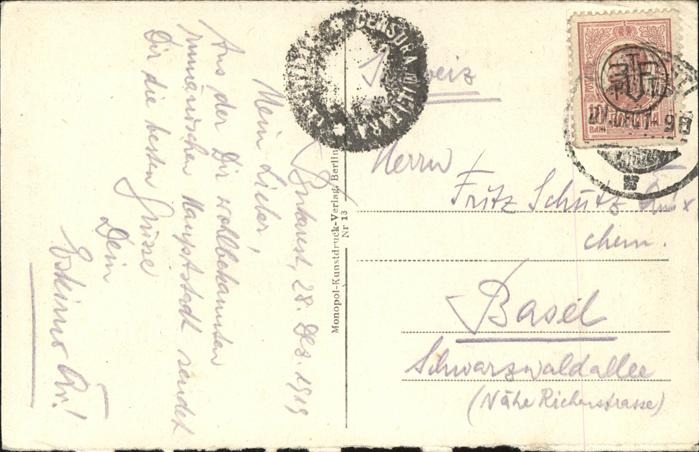 Bukarest, 28. Dez. 1919
Mein Lieber,
Aus der Dir wohlbekannten
rumänischen Hauptstadt sendet
Dir die besten Grüsse
Dein
Eskimo
CENSURA MILITARA
Monopol-Kunstdruck-Verlag, Berlin
Nr 13
Schweiz
10
BANI
Herrn
Fritz Schütz
chem.
Basel
Schwarzwaldallee
(Nähe Riehenstrasse)